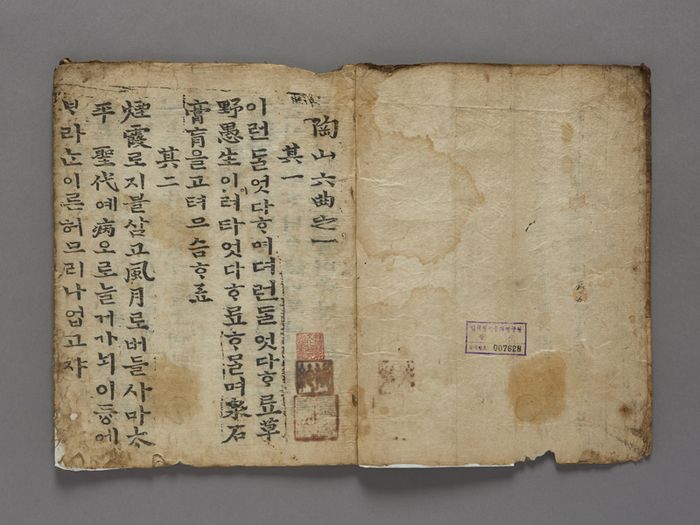 陶山六曲之一
其一
이런ᄃᆞᆯ엇다ᄒᆞ며뎌런ᄃᆞᆯ엇다ᄒᆞ료草
野愚生이이러타엇다ᄒᆞ료ᄒᆞᄆᆞᆯ며泉石
膏肓을고텨므슴ᄒᆞ료
其二
煙霞로지블삼고風月로버들사마太
平 聖代예病오로늘거가뇌이듕에
ᄇᆞ라ᄂᆞᆫ이른허므리나업고쟈
007628